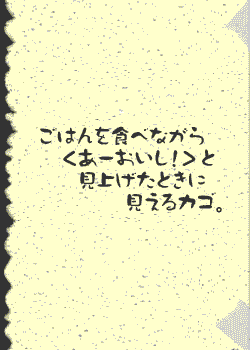 ごはんを食べながら
<あーおいし！>と
見上げたときに
見えるカゴ。